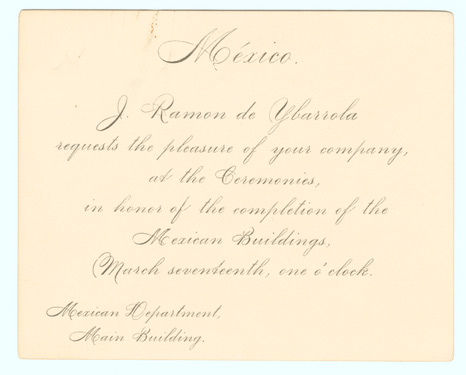 México.
J. Ramon de Ybarrola
requests the pleasure of your company,
at the Ceremonies,
in honor of the completion of the
Mexican Buildings,
March seventeenth, one o'clock.
Mexican Department,
Main Building.